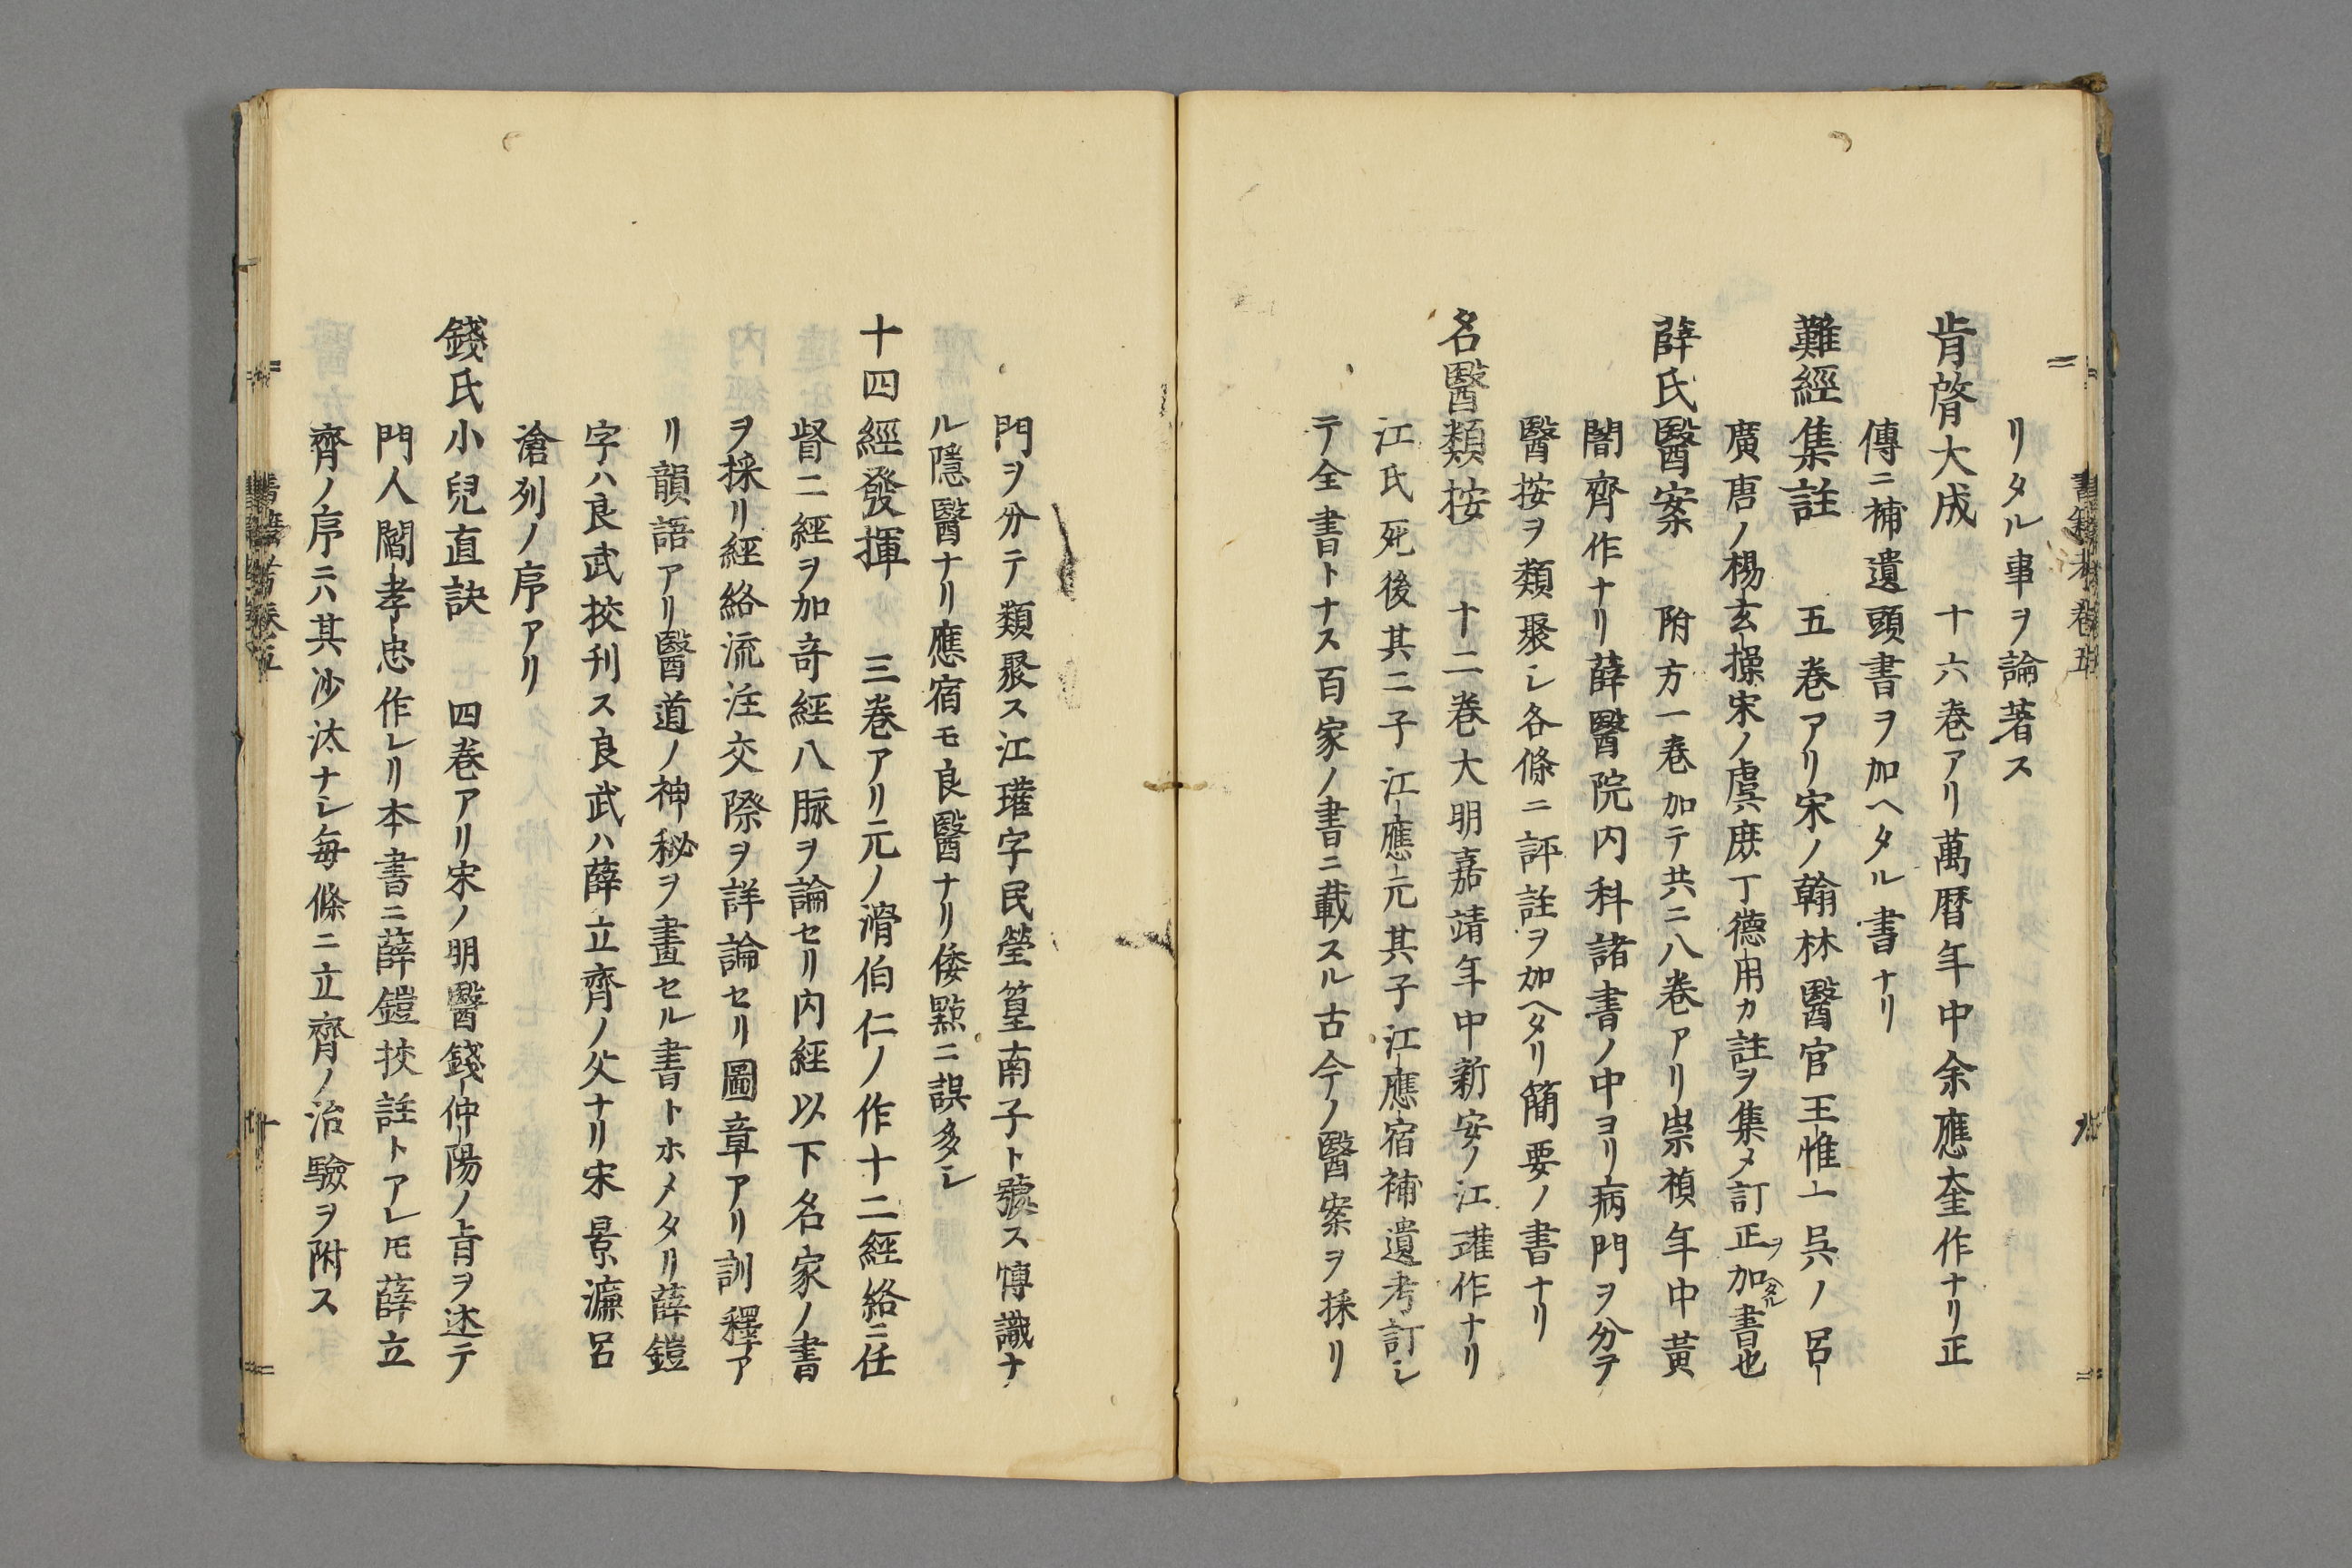 リタル事ヲ論著ス
肯綮大成　十六巻アリ萬暦年中余應奎作ナリ正
傳ニ補遺頭書ヲ加ヘタル書ナリ
難經集註　五巻アリ宋ノ翰林醫官王惟一呉ノ呂
廣唐ノ楊玄操宋ノ虞庶丁德用カ註ヲ集メ訂正ヲ加ヘタル書也
薛氏醫案　附方一巻加テ共ニ八巻アリ崇禎年中黄
闇齊作ナリ薛醫院内科諸書ノ中ヨリ病門ヲ分テ
醫按ヲ類聚シ各條ニ評註ヲ加ヘタリ簡要ノ書ナリ
名醫類按　十二巻大明嘉靖年中新安ノ江瓘作ナリ
江氏死後其二子江應元其子江應宿補遺考訂シ
テ全書トナス百家ノ書ニ載スル古今ノ醫案ヲ採リ
門ヲ分テ類聚ス江瓘字民瑩篁南子ト號ス博識ナ
ル隱醫ナリ應宿モ良醫ナリ倭點ニ誤多シ
十四經發揮　三巻アリ元ノ滑伯仁ノ作十二經絡ニ任
督二經ヲ加竒經八脉ヲ論セリ内經以下名家ノ書
ヲ採リ經絡流注交際ヲ詳論セリ圖章アリ訓釋ア
リ韻語アリ醫道ノ神秘ヲ畫セル書トホメタリ薛鎧
字ハ良武挍刊ス良武ハ薛立齊ノ父ナリ宋景濂呂
滄列ノ序アリ
錢氏小兒直訣　四巻アリ宋ノ明醫錢仲陽ノ旨ヲ述テ
門人閻孝忠作レリ本書ニ薛鎧挍註トアレ𪜈薛立
齊ノ序ニハ其沙汰ナシ毎條ニ立齊ノ治驗ヲ附ス